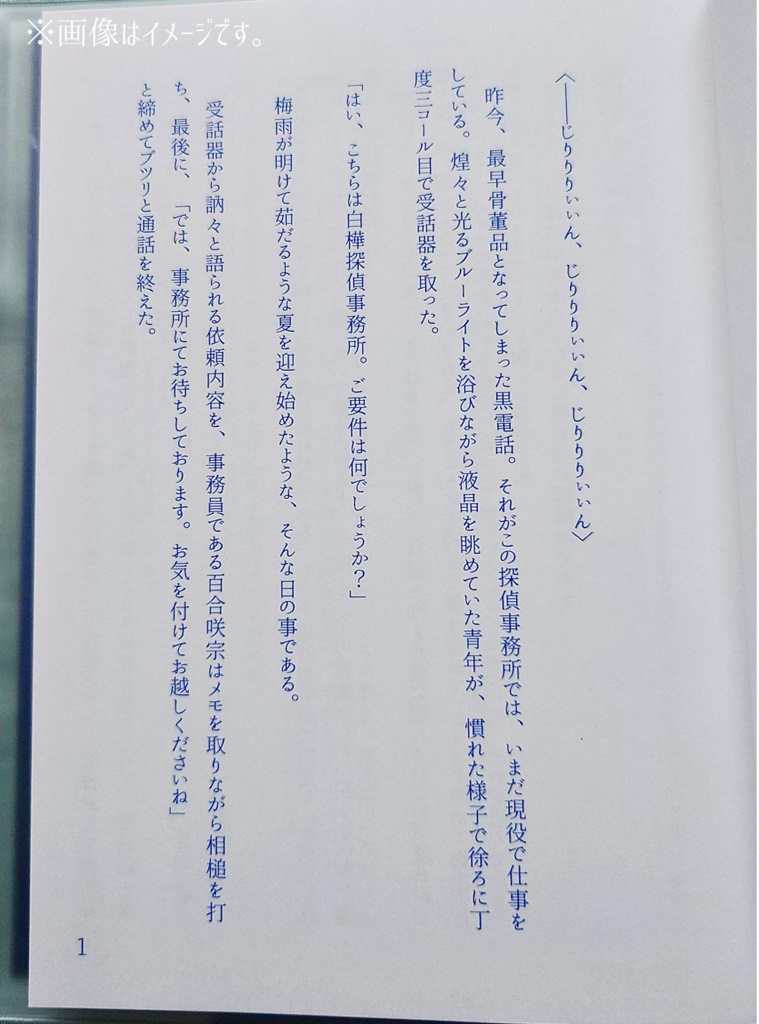 ※画像はイメージです。
〈――じりりりぃぃん、じりりりぃぃん、じりりりぃぃん〉
昨今、最早骨董品となってしまった黒電話。それがこの探偵事務所では、いまだ現役で仕事を
している。煌々と光るブルーライトを浴びながら液晶を眺めていた青年が、慣れた様子で徐ろに丁
度三コール目で受話器を取った。
「はい、こちらは白樺探偵事務所。ご要件は何でしょうか?」
梅雨が明けて茹だるような夏を迎え始めたような、そんな日の事である。
受話器から訥々と語られる依頼内容を、事務員である百合咲宗はメモを取りながら相槌を打
ち、最後に、「では、事務所にてお待ちしております。お気を付けてお越しくださいね」
と締めてブツリと通話を終えた。
1